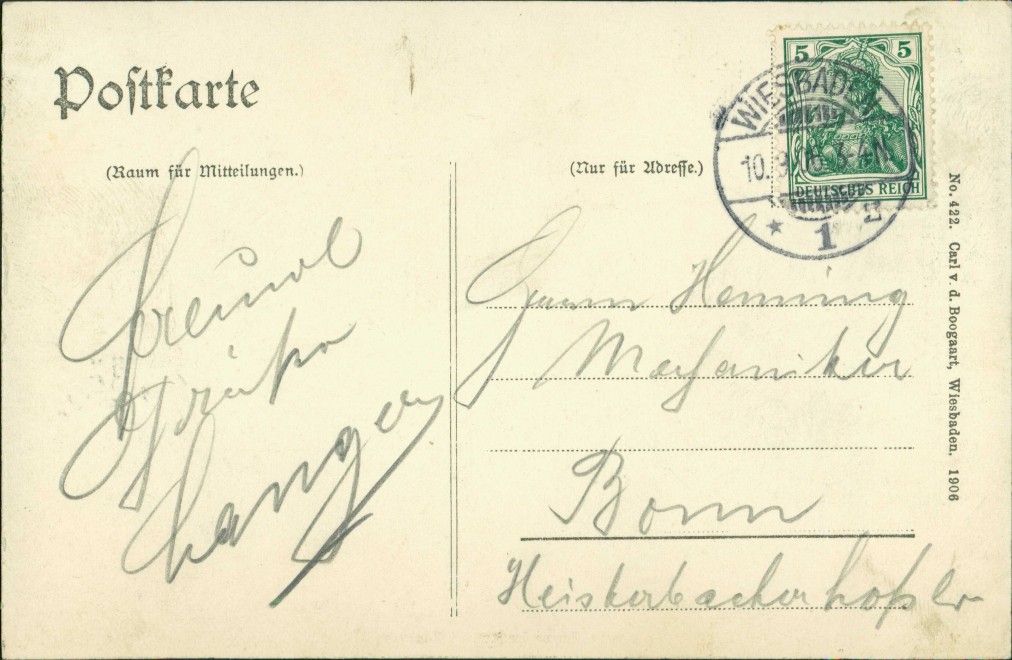 Postkarte
(Raum für Mitteilungen.)
Freundl
Grüße
Langen
(Nur für Adresse.)
5 5
DEUTSCHES REICH
WIESBADEN
10.3.06. 3-4N.
* 1 *
Herrn Henning
Mechaniker
Bonn
Heisterbacherhofstr
No. 422. Carl v. d. Boogaart, Wiesbaden. 1906